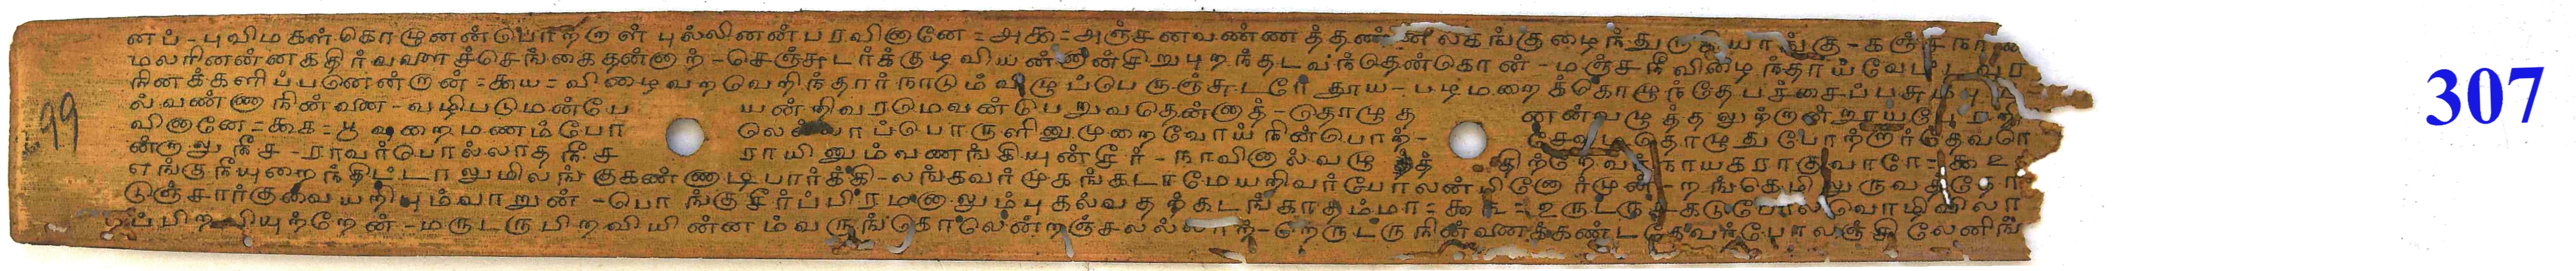 னப் - புவிமகள் கொழுனன் போற்றாள் புல்லினன் பரவினானே = அகூ = அஞ்சனவண்ணத்தண்ண லகங்குழைந்துருகியாங்கு - கஞ்சநாண்
மலரினன்ன கதிர்வளைச்செங்கைதன்னாற் - செஞ்சுடர்க்குழவியன்னான்சிறுபுறந்தடவந்தெண்டுகொன் - மஞ்சநீவிழைந்தாய்வேட்டவர
நினக்களிப்படுனென்றான் = கூய = விழைவறவெறிந்தார்நாடும் விழுப்பெருஞ்சுடரே தூய - படிமறைக்கொழுந்தே பச்சைப்பசும்பு
ல்வண்ணாநின்வண - வழிபடுமன்பே யன்றிவரமெவன்பெறுவதென்னாத் - தொழுத னன்வழுத்தலுற்றான்
வினானே = கூக = பூவுறைமணம்போ லெல்லாப்பொருளினுமுறைவோய்நின்பொற் - சேவடிதொழுதுபோற்றார்தேவரே
ன்றாலுநீச - ரரவர்பொல்லாதநீச ராயினும்வணங்கியுன்சீர் - நாவினால்வழுத்தி நாயகராகுவாரே = கூஉ
எங்குநீயுறைந்திட்டாலுமிலங்குகண்ணாடிபார்க்கி - லங்கவர்முகங்கடாமேயறிவர்போலன்பினோர்முன் - றங்கெழிலுருவத்தோ
டுஞ்சார்குவையறியும்வாறுன் - பொங்குசீர்ப்பிரமனாலும்புகல்வதற்கடங்காதம்மா = கூ௩ = உருட்ருசகடுபோலவொழிவிலா
றப்பிறவியுற்றேன் - மருடருபிறவியின்னம்வருங்கொலென்றஞ்சலல்லாற் - றெருடருநின்வணக்கண்டதேவர்போலஞ்சிலேனிங்
99
307